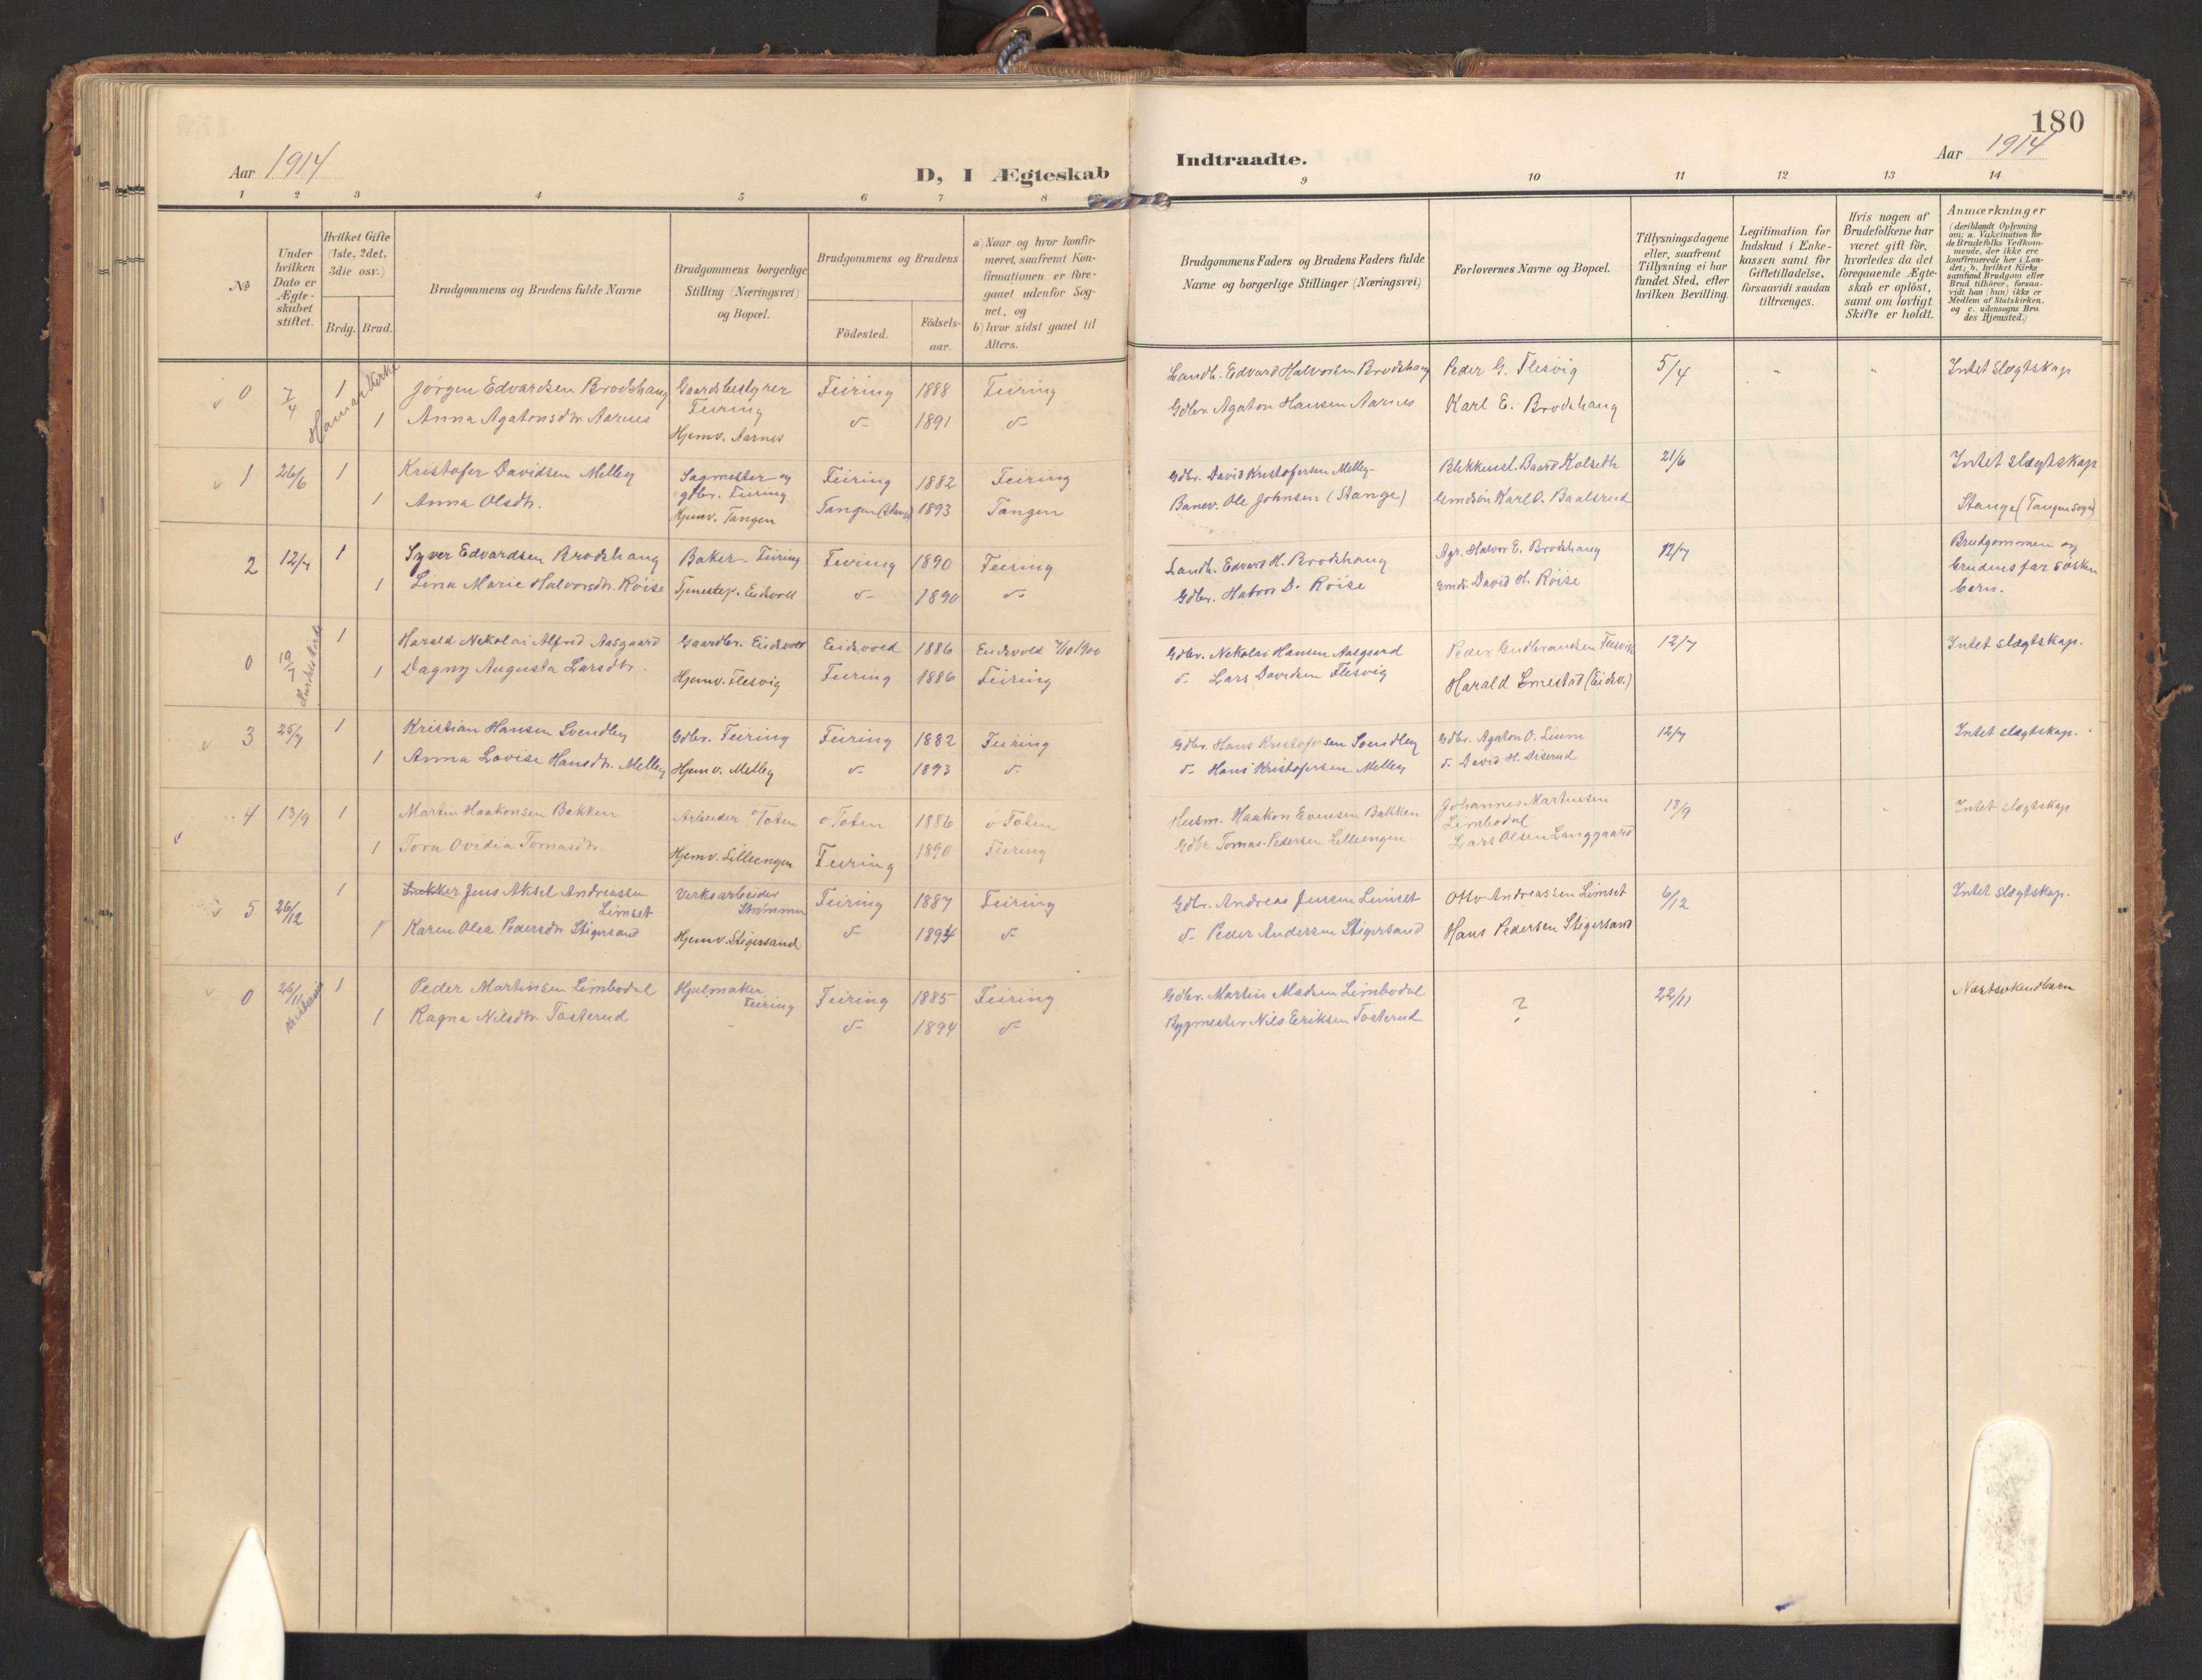 180
Aar 1914
D, I Ægteskab
Indtraadte.
Aar 1914
1 2 3 4 5 6 7 8 9 10 11 12 13 14
№
Under hvilken Dato er Ægteskabet stiftet.
Hvilket Gifte (1ste, 2det, 3die osv.)
Brdg. Brud.
Brudgommens og Brudens fulde Navne
Brudgommens borgerlige Stilling (Næringsvei) og Bopæl.
Brudgommens og Brudens
Födested.
Födsels-aar.
a) Naar og hvor konfirmeret, saafremt Konfirmationen er foregaaet udenfor Sognet, og
b) hvor sidst gaaet til Alters.
Brudgommens Faders og Brudens Faders fulde Navne og borgerlige Stillinger (Næringsvei)
Forlovernes Navne og Bopæl.
Tillysningsdagene eller, saafremt Tillysning ei har fundet Sted, efter hvilken Bevilling.
Legitimation for Indskud i Enkekassen samt for Giftetilladelse, forsaavidt saadan tiltrænges.
Hvis nogen af Brudefolkene har været gift før, hvorledes da det foregaaende Ægteskab er oplöst, samt om lovligt Skifte er holdt.
Anmærkninger (deriblandt Oplysning om; a. Vakcination for de Brudefolks Vedkommende, der ikke ere konfirmerede her i Landet; b. hvilket Kirkesamfund Brudgom eller Brud tilhører, forsaavidt han (hun) ikke er Medlem af Statskirken, og c. udensogns Brudes Hjemsted.)
0 7/4 Hamar Kirke 1 Jørgen Edvardsen Brodshaug Gaardsbestyrer Feiring Feiring 1888 Feiring Landh. Edvard Halvorsen Brodshaug Peder G. Flesvig 5/4 " " Intet Slægtskap
1 Anna Agatonsdtr. Aarnes Hjemv. Aarnes d- 1891 d- Gdbr. Agaton Hansen Aarnes Karl E. Brodshaug
1 26/6 1 Kristofer Davidsen Melley Sagmester og gdbr. Feiring Feiring 1882 Feiring Gdbr. David Kristofersen Melley Blikkensl. Baard Kolseth 21/6 Intet slægtskap
1 Anna Olsdtr. Hjemv. Tangen Tangen (Stange) 1893 Tangen Banev. Ole Johnsen (Stange) Karl O. Baalsrud Stange (Tangen sogn)
2 12/7 1 Syver Edvardsen Brodshaug Baker - Feiring Feiring 1890 Feiring Landh. Edvard H. Brodshaug Agr. Halvor E. Brodshaug 12/7 Brudgommen og brudens far søskenbern.
1 Lina Marie Halvorsdtr. Røise Tjenestep. Eidsvoll d- 1890 d- Gdbr. Halvor D. Røise Gmds. David H. Røise
0 19/7 1 Harald Nekolai Alfred Aasgaard Gaardbr. Eidsvold Eidsvold 1886 Eidsvold 7/10 1900 Gdbr. Nekolai Hansen Aasgaard Peder Gudbrandsen Flesvik 12/7 Intet slægtskap.
1 Dagny Augusta Larsdtr. Hjemv. Flesvig Feiring 1886 Feiring d- Lars Davidsen Flesvig Harald Emestad (Eidsv.)
3 25/7 1 Kristian Hansen Svendley Gdbr. Feiring Feiring 1882 Feiring Gdbr. Hans Kristofersen Svendley Gdbr. Agaton O. 12/7 Intet slægtskap.
1 Anna Lovise Hansdtr. Melley Hjemv. Melley d- 1893 d- d- Hans Kristofersen Melley d- David H. Diserud
4 13/9 1 Martin Haakensen Bakken Arbeider ø Toten ø Toten 1886 ø Toten Husm. Haakon Evensen Bakken Johannes Martinsen Limbodal 13/9 " Intet slægtskap
1 Tora Ovidia Tomasdtr. Hjemv. Lilleengen Feiring 1890 Feiring Gdbr. Tomas Pedersen Lilleengen Lars Olsen Langgaard
5 26/12 1 Jens Aksel Andreassen Limset Verksarbeider Strømmen Feiring 1887 Feiring Gdbr. Andreas Jensen Limset Otto Andreassen Limset 6/12 Intet slægtskap.
1 Karen Olea Pedersdtr. Stigersand Hjemv. Stigersand d- 1894 d- d- Peder Andersen Stigersand Hans Pedersen Stigersand
0 26/11 Kristiania 1 Peder Martinsen Limbodal Hjulmaker Feiring Feiring 1885 Feiring Gdbr. Martin Madsen Limbodal ? 22/11 Næstsøkendbarn
1 Ragna Nilsdtr. Tosterud - d- 1894 d- Bygmester Nils Eriksen Tosterud